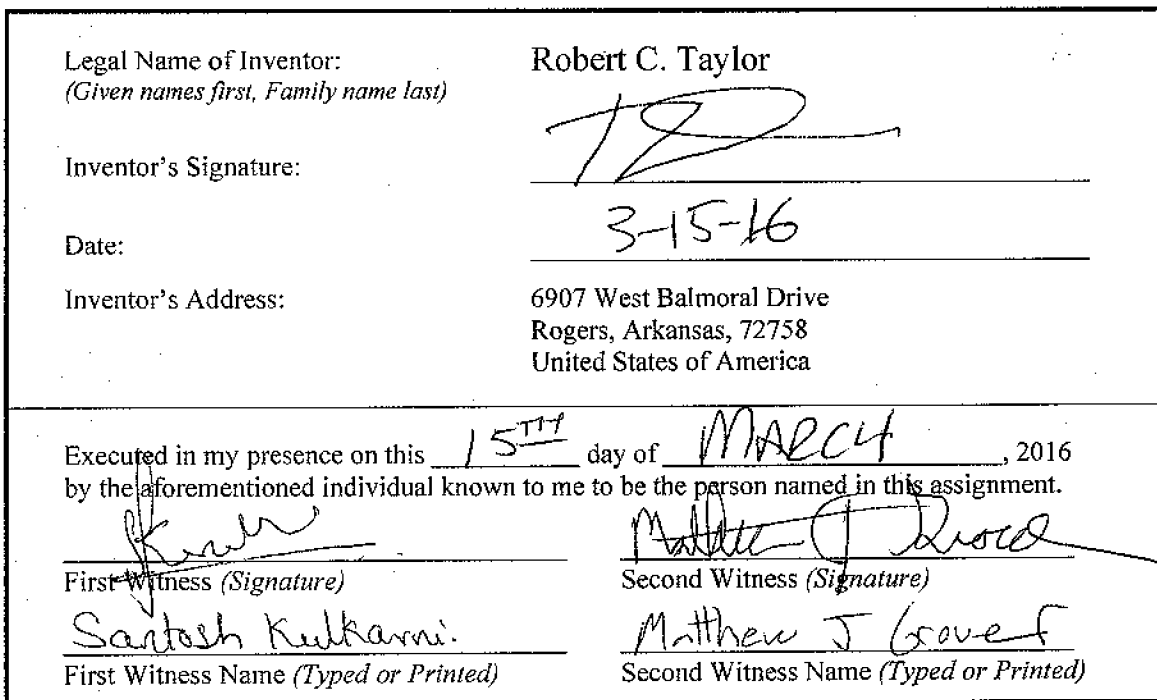 Legal Name of Inventor: Robert C. Taylor
(Given names first, Family name last)
Inventor's Signature:
Date: 3-15-16
Inventor's Address: 6907 West Balmoral Drive
Rogers, Arkansas, 72758
United States of America
Executed in my presence on this 15TH day of MARCH, 2016
by the aforementioned individual known to me to be the person named in this assignment.
Matthew J
First Witness (Signature) Second Witness (Signature)
Santosh Kulkarni. Matthew J Grover
First Witness Name (Typed or Printed) Second Witness Name (Typed or Printed)